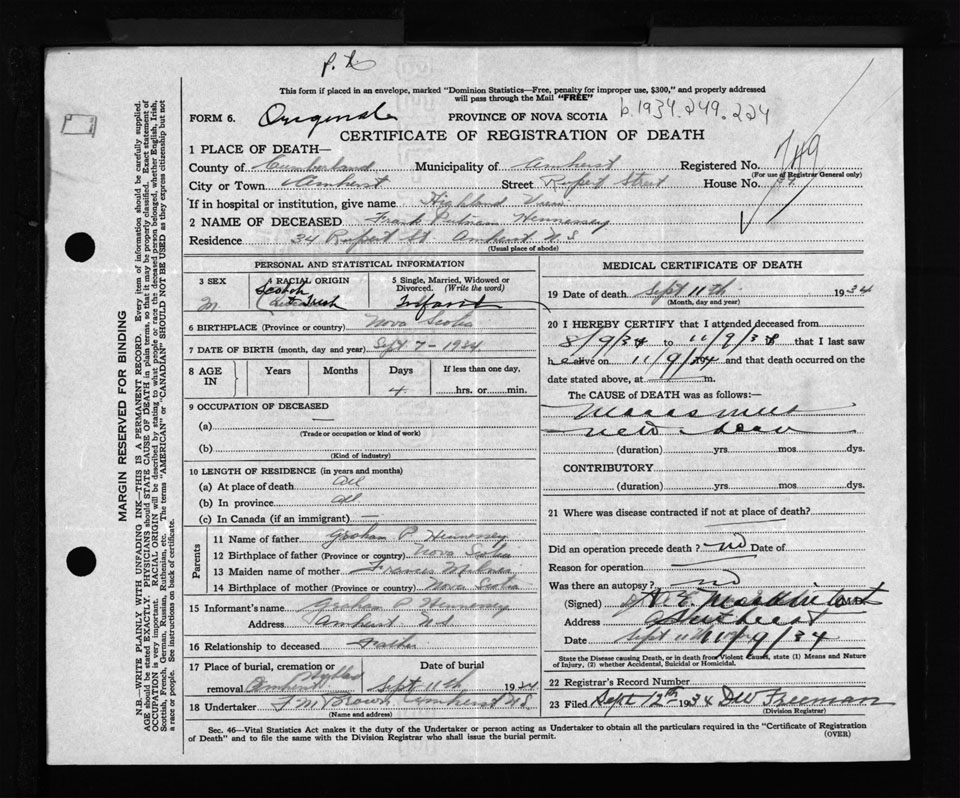 This form if placed in an envelope, marked "Dominion Statistics—Free, penalty for improper use, $300," and properly addressed
will pass through the Mail "FREE"
FORM 6. Original PROVINCE OF NOVA SCOTIA b.1934.249.224
CERTIFICATE OF REGISTRATION OF DEATH
749
1 PLACE OF DEATH—
County of Cumberland Municipality of Amherst Registered No.
(For use of Registrar General only)
City or Town Amherst Street Rupert Street House No.
If in hospital or institution, give name Highland View
2 NAME OF DECEASED Frank Putnam Hennessey
Residence 34 Rupert St Amherst N.S
(Usual place of abode)
PERSONAL AND STATISTICAL INFORMATION
3 SEX M
4 RACIAL ORIGIN Scotch Irish
5 Single, Married, Widowed or Divorced. (Write the word) Infant
6 BIRTHPLACE (Province or country) Nova Scotia
7 DATE OF BIRTH (month, day and year) Sept 7 - 1934
8 AGE IN Years Months Days 4 If less than one day, hrs. or min.
9 OCCUPATION OF DECEASED
(a) —
(Trade or occupation or kind of work)
(b)
(Kind of industry)
10 LENGTH OF RESIDENCE (in years and months)
(a) At place of death All
(b) In province All
(c) In Canada (if an immigrant) —
Parents
11 Name of father Graham P Hennessey
12 Birthplace of father (Province or country) Nova Scotia
13 Maiden name of mother Frances
14 Birthplace of mother (Province or country) Nova Scotia
15 Informant's name Graham P Hennessey
Address Amherst N.S
16 Relationship to deceased Father
17 Place of burial, cremation or removal Amherst Date of burial Sept 11th 1934
18 Undertaker F M Brown Amherst N.S.
(Name and address)
MEDICAL CERTIFICATE OF DEATH
19 Date of death Sept 11th 1934
(Month, day and year)
20 I HEREBY CERTIFY that I attended deceased from
8/9/34 to 11/9/34 that I last saw
h e alive on 11/9/34 and that death occurred on the
date stated above, at m.
The CAUSE of DEATH was as follows:—
new born
(duration) yrs mos dys.
CONTRIBUTORY
(duration) yrs. mos. dys.
21 Where was disease contracted if not at place of death?
Did an operation precede death? no Date of
Reason for operation
Was there an autopsy? no
(Signed) M.D.
Address Amherst
Date Sept 11 11/9/34
State the Disease causing Death, or in death from Violent Causes, state (1) Means and Nature
of Injury, (2) whether Accidental, Suicidal or Homicidal.
22 Registrar's Record Number
23 Filed Sept 12th 1934 DW Freeman
(Division Registrar)
Sec. 46—Vital Statistics Act makes it the duty of the Undertaker or person acting as Undertaker to obtain all the particulars required in the "Certificate of Registration
of Death" and to file the same with the Division Registrar who shall issue the burial permit.
(OVER)
MARGIN RESERVED FOR BINDING
N.B.—WRITE PLAINLY WITH UNFADING INK—THIS IS A PERMANENT RECORD. Every item of information should be carefully supplied.
AGE should be stated EXACTLY. PHYSICIANS should STATE CAUSE OF DEATH in plain terms, so that it may be properly classified. Exact statement of
OCCUPATION is very important. RACIAL ORIGIN will be described by stating to what people or race the deceased person belonged, whether English, Irish,
Scottish, French, German, Russian, Ruthenian, etc. The terms "AMERICAN" or "CANADIAN" SHOULD NOT BE USED as they express citizenship but not
a race or people. See instructions on back of certificate.